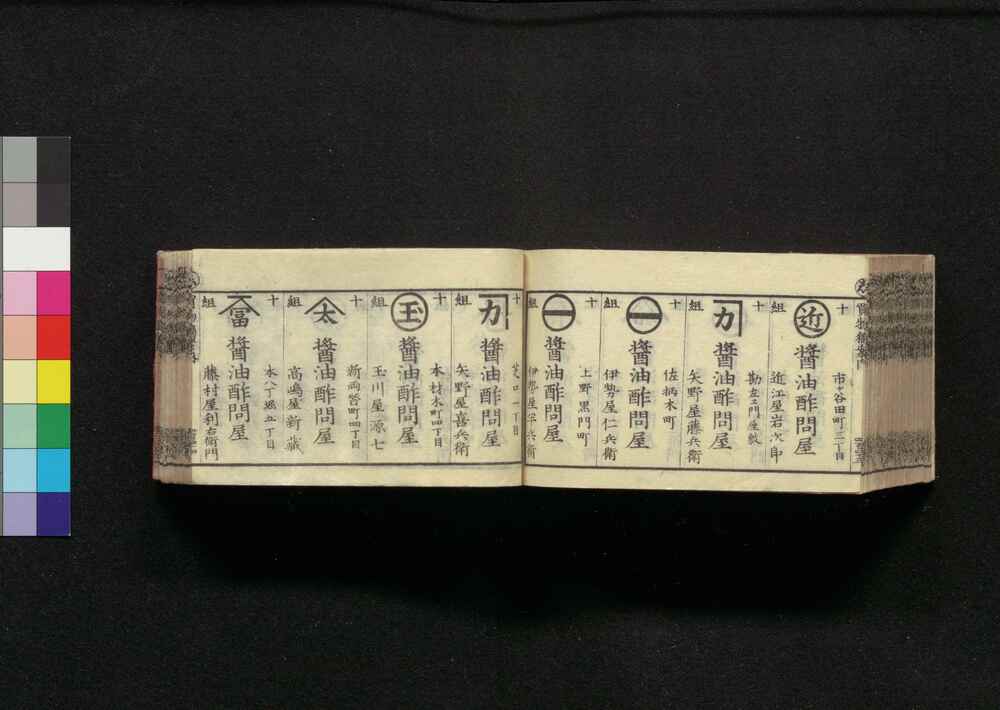 十組
近
醤油酢問屋
市ヶ谷田町二丁目
近江屋岩次郎
十組
カ
醤油酢問屋
勘左エ門屋敷
矢野屋藤兵衛
十組
一
醤油酢問屋
佐柄木町
伊勢屋仁兵衛
十組
一
醤油酢問屋
上野黒門町
伊勢屋半兵衛
十組
カ
醤油酢問屋
芝口一丁目
矢野屋喜兵衛
十組
玉
醤油酢問屋
本材木町四丁目
玉川屋源七
十組
太
醤油酢問屋
新両替町四丁目
高嶋屋新蔵
十組
冨
醤油酢問屋
本八丁堀五丁目
藤村屋利右衛門